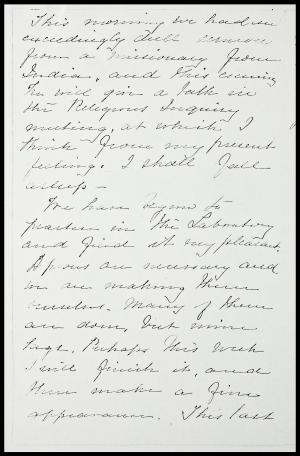 This morning we had an
exceedingly dull sermon
from a missionary from
India, and this evening
he will give a talk in
the Religious Inquiry
meeting, at which I
think from my present
feeling, I shall fall
asleep —
We have begun to
practice in the Laboratory
and find it very pleasant.
Aprons are necessary and
we are making them
ourselves. Many of them
are done, but mine
isn't. Perhaps this week
I will finish it, and
then make a fine
appearance. This last